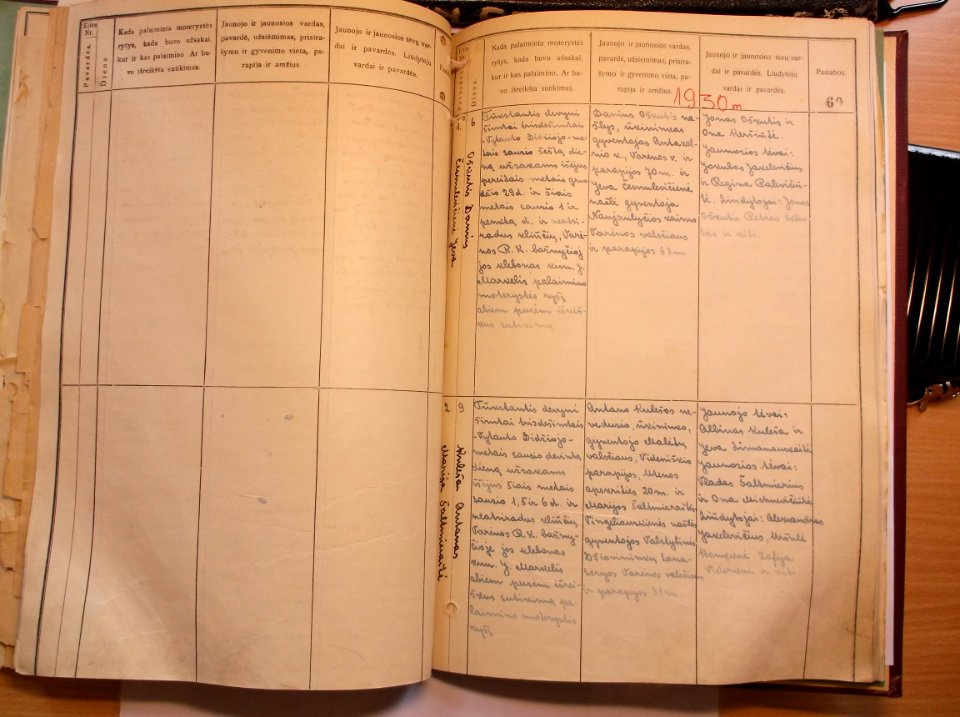 Eilės Nr.
Pavardės.
Diena.
Kada palaiminta moterystės
ryšys, kada buvo užsakai,
kur ir kas palaimino. Ar bu-
vo išreikšta sutikimas.
Jaunojo ir jaunosios vardas,
pavardė, užsiėmimas, prisira-
šymo ir gyvenimo vieta, pa-
rapija ir amžius.
Jaunojo ir jaunosios tėvų var-
dai ir pavardės. Liudytojų
vardai ir pavardės.
Kada palaiminta moterystės
ryšys, kada buvo užsakai,
kur ir kas palaimino. Ar bu-
vo išreikšta sutikimas.
Jaunojo ir jaunosios vardas,
pavardė, užsiėmimas, prisira-
šymo ir gyvenimo vieta, pa-
rapija ir amžius.
Jaunojo ir jaunosios tėvų var-
dai ir pavardės. Liudytojų
vardai ir pavardės.
Pastabos.
1930 m
60
1.
6
Oškutis Danius
Česnulevičienė Ieva
Tūkstantis devyni
šimtai trisdešimtais
-Vytauto Didžiojo- me-
tais sausio šeštą die-
ną užsakams išėjus
pereitais metais gruo-
džio 29 d. ir šiais
metais sausio 1 ir
penktą d. ir neatsi-
radus kliūčių, Varė-
nos R. K. bažnyčioj
jos klebonas kun. J.
Markelis palaimino
moterystės ryšį
abiem pusėm išreiš-
kus sutikimą
Danius Oškutis na-
šlys, ūkininkas
gyventojas
k., Varėnos v. ir
parapijos 70 m. ir
Ieva Česnulevičienė
našlė gyventoja
kaimo
Varėnos valsčiaus
ir parapijos 63 m.
Jonas Oškutis ir
Ona
Jaunosios tėvai:
Jokubas Jakelevičius
ir Regina
Liudytojai: Jonas
Oškutis Petras
ir kiti.
2.
9
Kuleša Antanas
Marija Saltmieraitė
Tūkstantis devyni
šimtai trisdešimtais
-Vytauto Didžiojo-
metais sausio devintą
dieną užsakams
išėjus šiais metais
sausio 1, 5 ir 6 d. ir
neatsiradus kliūčių
Varėnos R. K. bažny-
čioje jos klebonas
kun. J. Markelis
abiem pusėm išreiš-
kus sutikimą pa-
laimino moterystės
ryšį
Antano Kulešos ne-
vedusio,
gyventojo Malėtų
valsčiaus, Videniškio
parapijos, Utenos
apskrities 20 m. ir
Marijos Saltmieraitės
našlės
gyventojos Valstybinės
Džiovininkų Sana-
torijos Varėnos valsčiaus
ir parapijos 31 m.
Jaunojo tėvai:
Albinas Kuleša ir
Ieva
Jaunosios tėvai:
Vladas Saltmierius
ir Ona
Liudytojai: Aleksandras
Jakelevičius,
Zofija
ir kiti